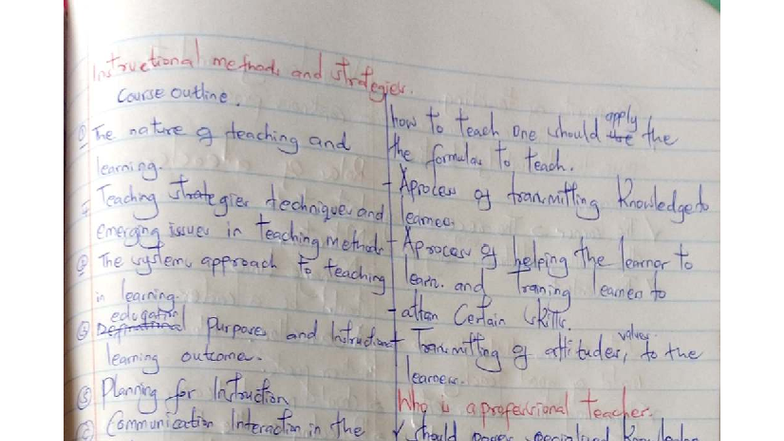 Instructional methods and strategies.
Course outline.
① The nature of teaching and
learning.
Teaching strategies techniques and
emerging issues in teaching methods
The system approach to teaching
in learning.
educational purposes and Instruction
learning outcomes.
⑤ Planning for Instruction
Communication Interaction in the
how to teach one should apply the
the formulas to teach.
- A process of transmitting knowledge to
learners.
- A process of helping the learner to
learn. and Training learners to
attain Certain skills.
- Transmitting of attitudes, values to the
learners.
Who is a professional teacher.
✓ should poses specialised knowledge